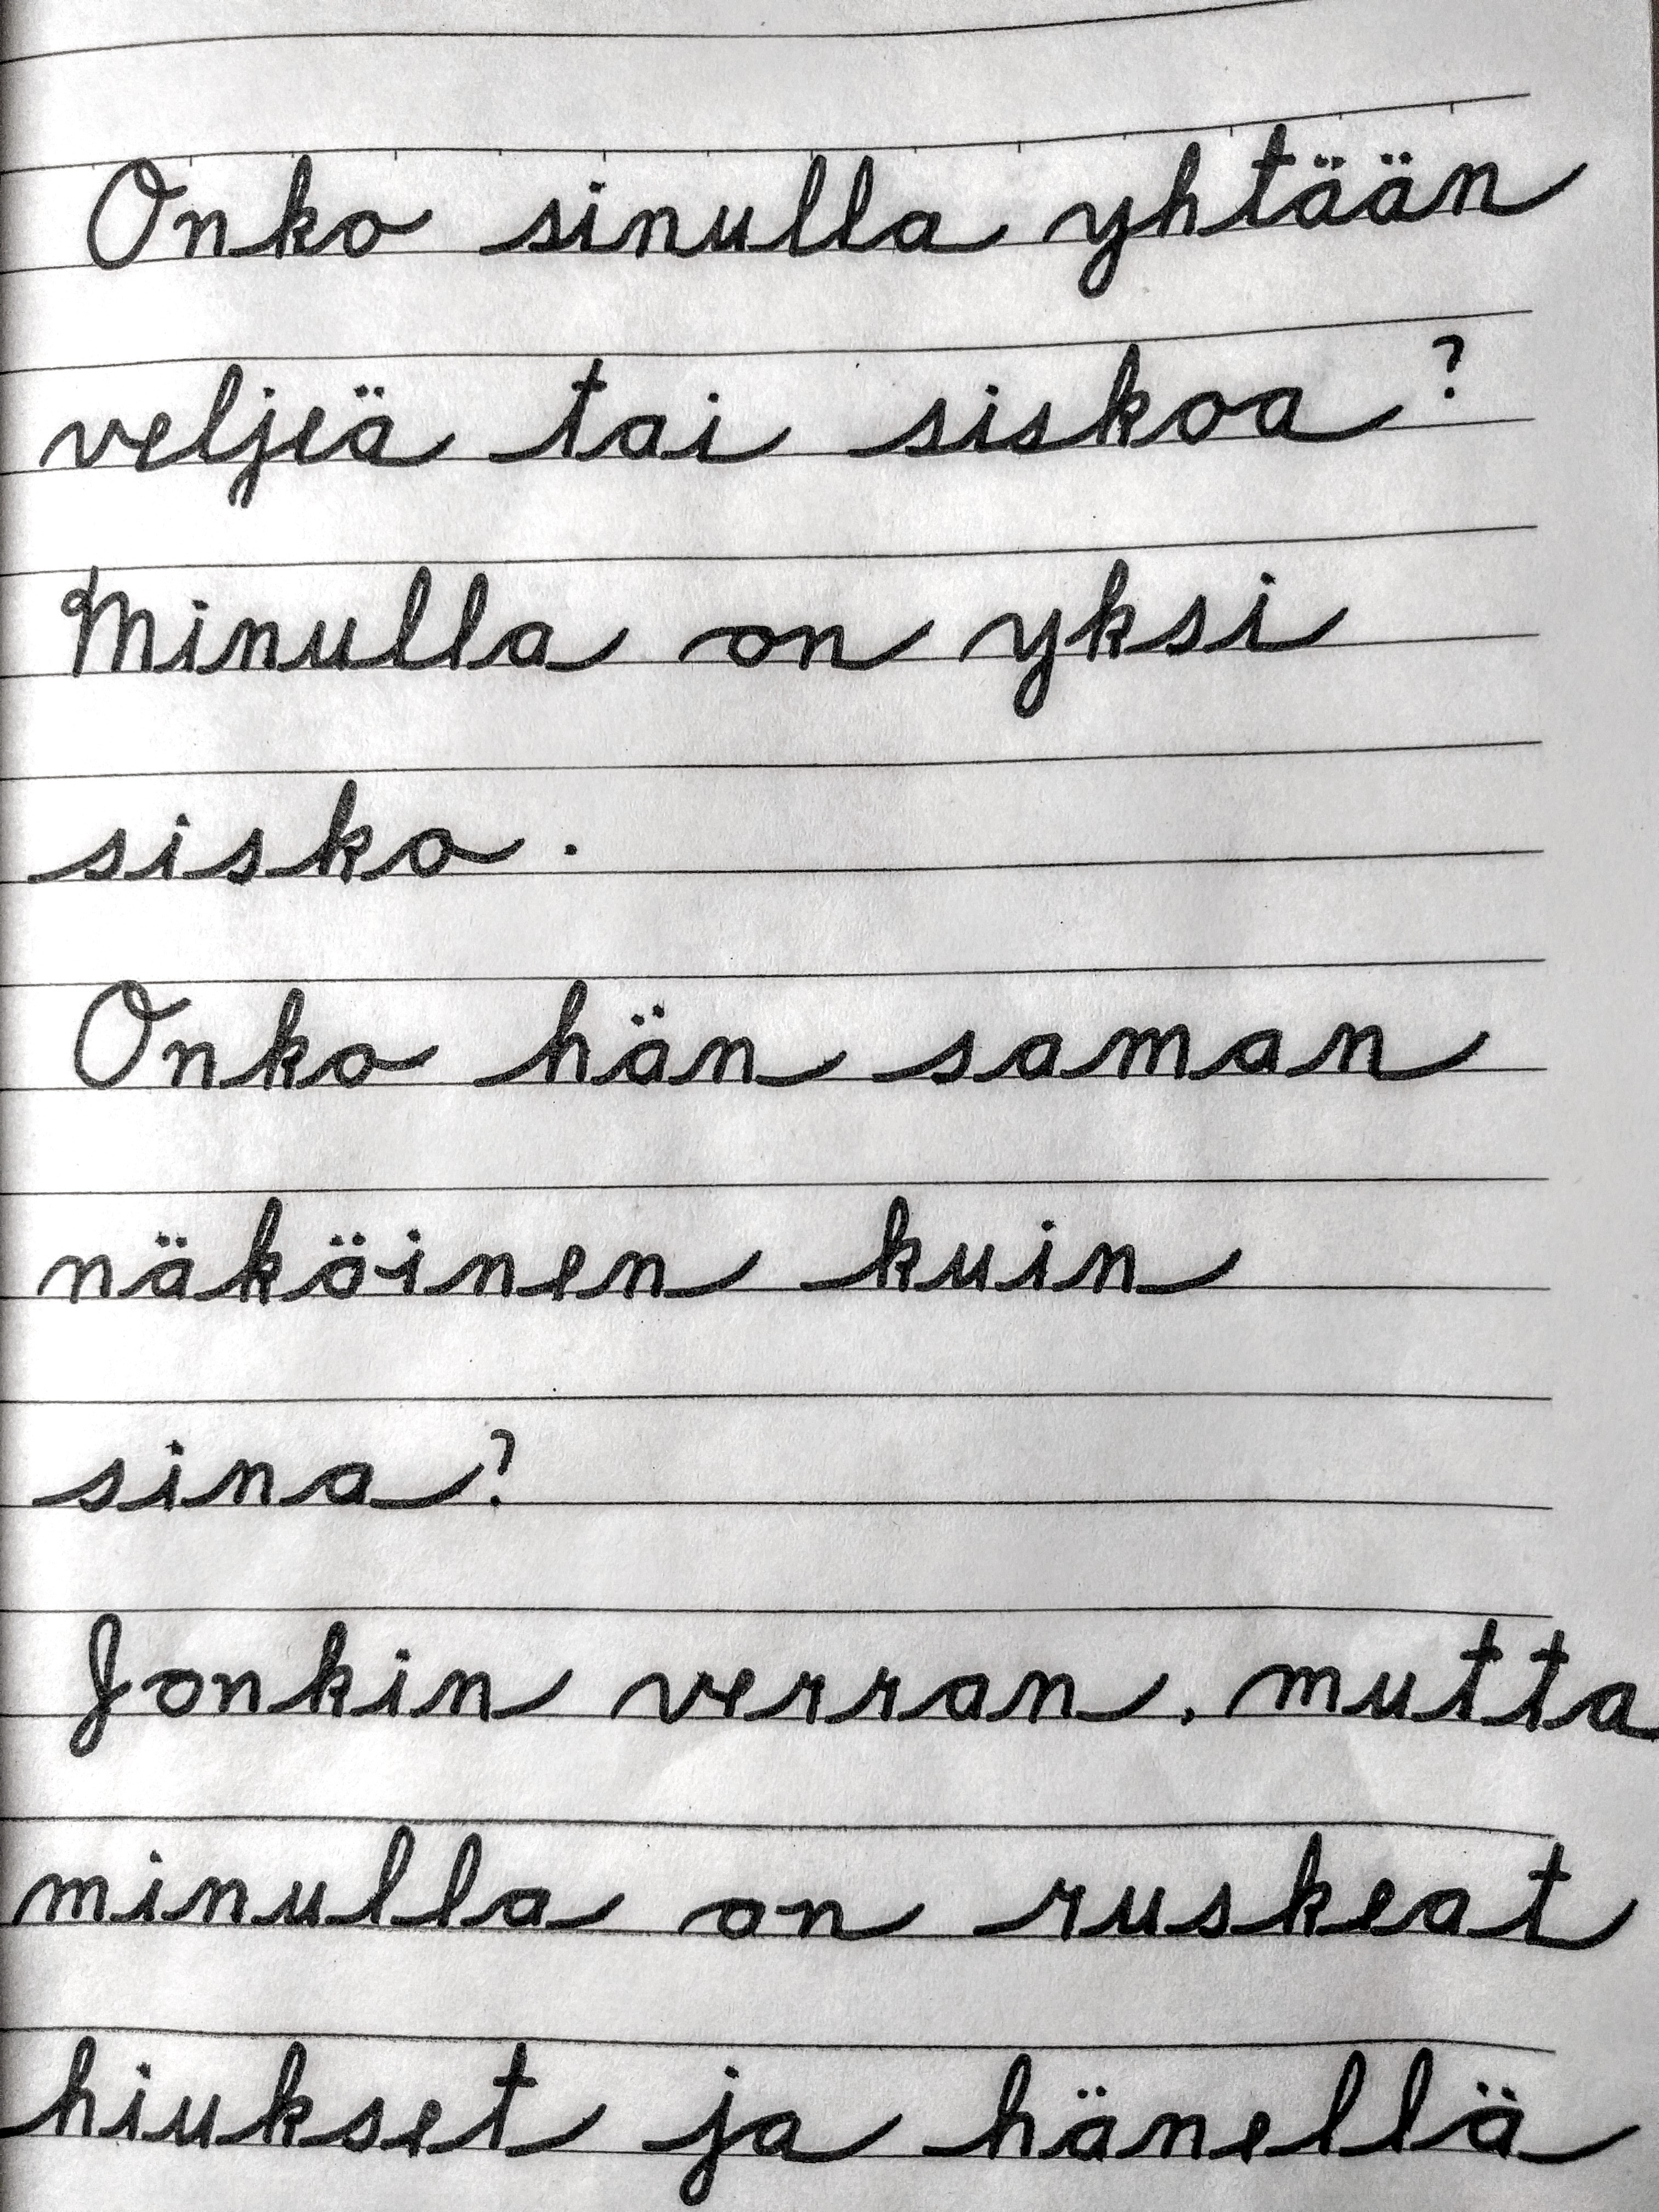 Onko sinulla yhtään
veljeä tai siskoa?
Minulla on yksi
sisko.
Onko hän saman
näköinen kuin
sina?
Jonkin verran, mutta
minulla on ruskeat
hiukset ja hänellä